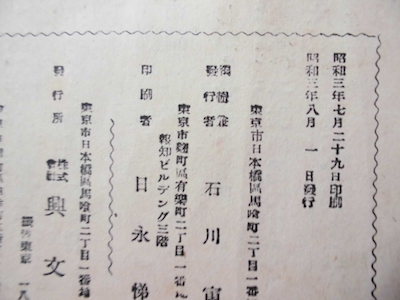 昭和三年七月二十九日印刷
昭和三年八月 一日發行
東京市日本橋區馬喰町二丁目一番
發行者 石川寅
東京市麹町區有樂町二丁目一番
報知ビルデング三階
印刷者 日永
東京市日本橋區馬喰町二丁目一番地
發行所 株式會社 興文
東京 一八